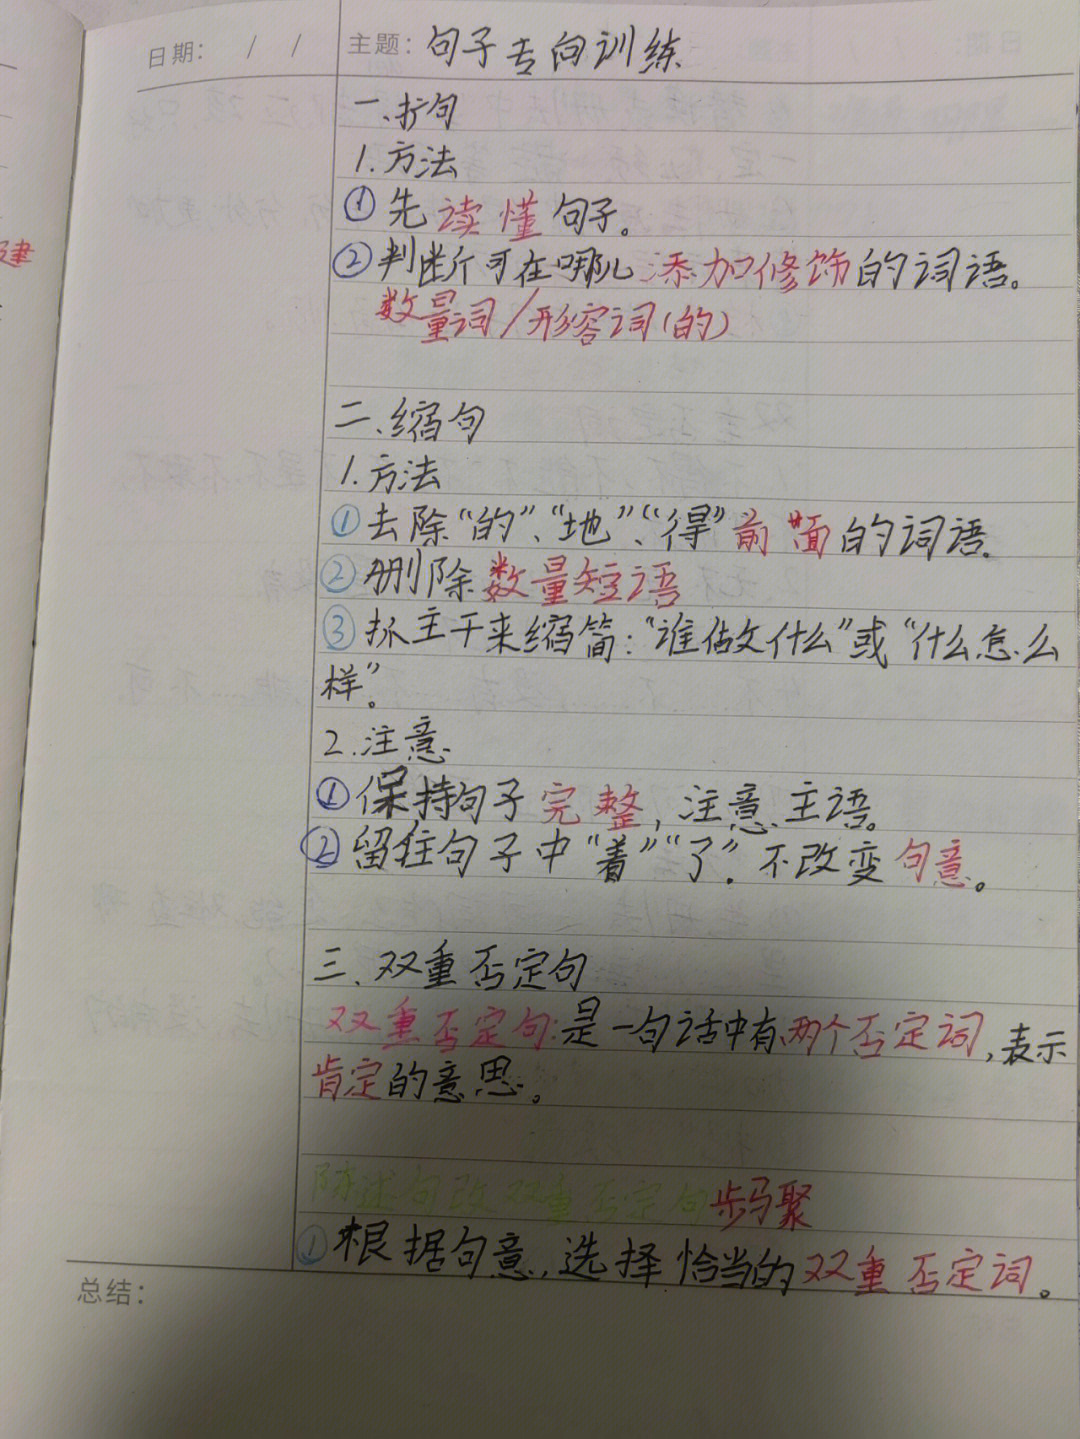 日期: / /
主题: 句子专向训练
一、扩句
1.方法
①先读懂句子。
②判断可在哪儿添加修饰的词语。
数量词/形容词(的)
二、缩句
1.方法
①去除“的”、“地”、“得”前面的词语。
②删除数量短语
③抓主干来缩简:“谁做什么”或“什么怎么
样”。
2.注意
①保持句子完整,注意主语。
②留住句子中“着”“了”.不改变句意。
三、双重否定句
双重否定句:是一句话中有两个否定词,表示
肯定的意思。
陈述句改双重否定句步骤
①根据句意,选择恰当的双重否定词。
总结:
建